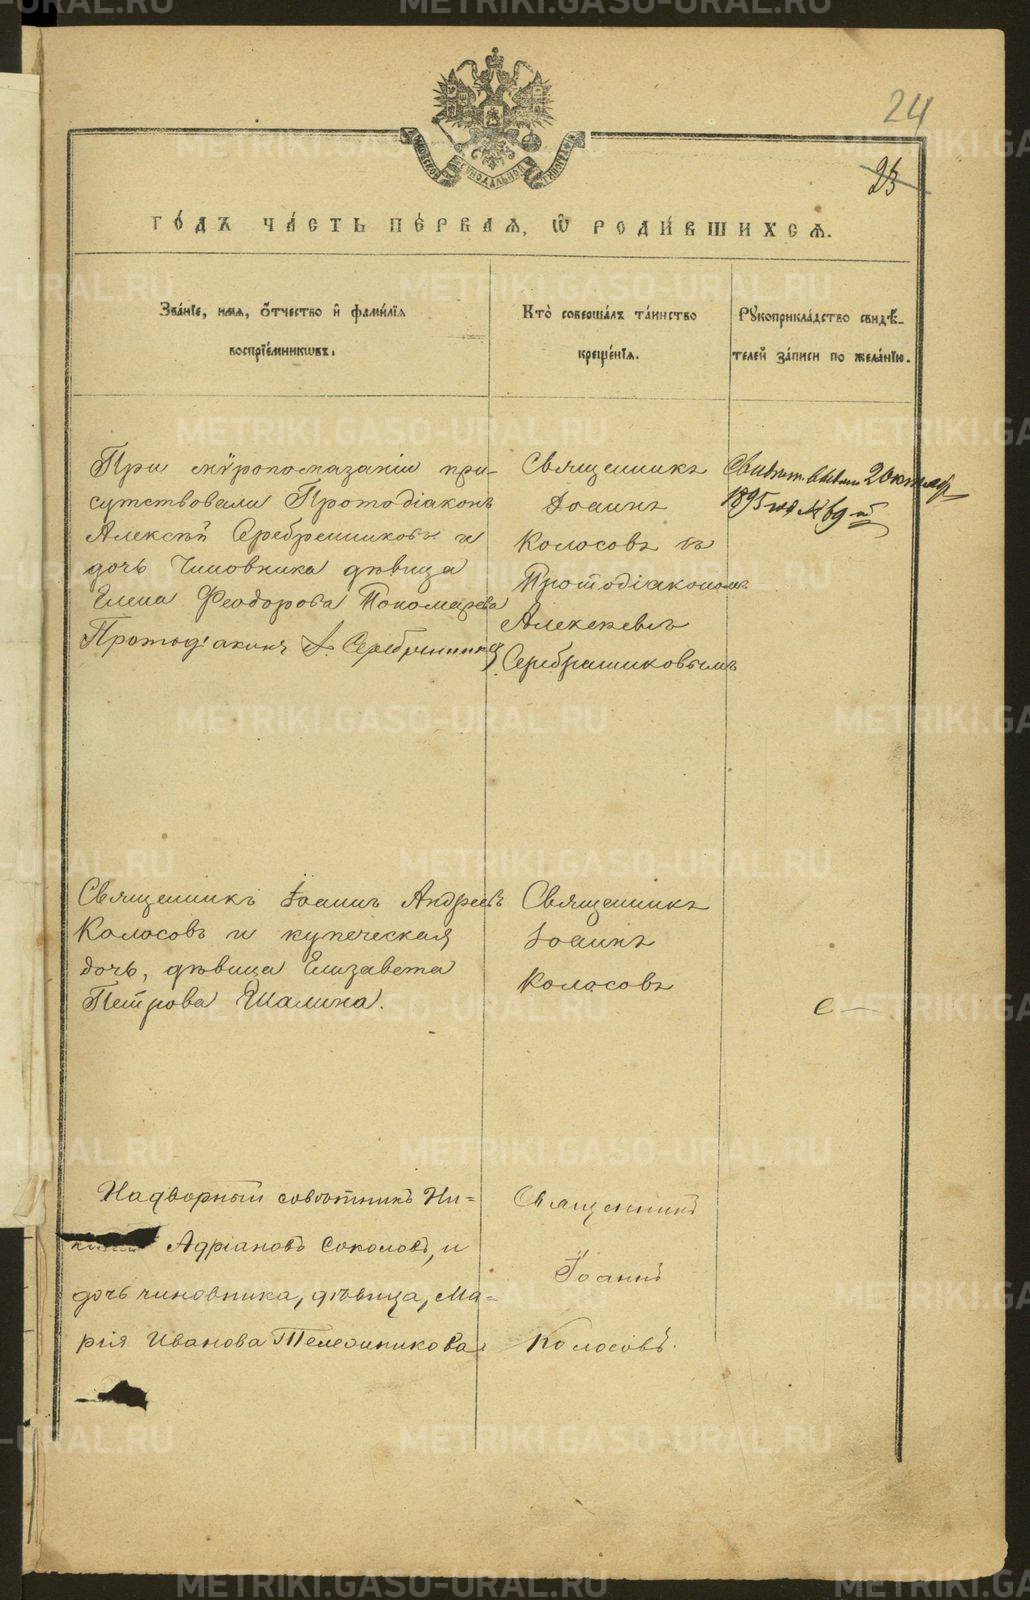 24
23
МОСКОВСКОЙ СѴНОДАЛЬНОЙ ТИПОГРАФІИ
ГО́ДЪ ЧА́СТЬ ПЕ́РВАѦ, Ѽ РОДИ́ВШИХСѦ.
Зва́нїе, имѧ, Ѻтчество и фами́лїѧ
воспрїе́мниковъ.
Кто̀ соверша́лъ та́инство
креще́нїѧ.
Рꙋкоприкла́дство свидѣ́-
телей за́писи по жела́нїю.
При мѵропомазаніи при-
сутствовали Протодіаконъ
Алексѣй Серебренниковъ и
дочь Чиновника дѣвица
Елена Феодорова Пономарева
Протодіаконъ А. Серебренниковъ
Священникъ
Іоаннъ
Колосовъ съ
Протодіакономъ
Алексѣемъ
Серебрениковымъ
2 октября
1895 года № 69
Священникъ Іоаннъ Андреевъ
Колосовъ и купеческая
дочь, дѣвица Елизавета
Петрова Ушалина.
Священникъ
Іоаннъ
Колосовъ
Надворный совѣтникъ Ни-
Адріановъ Соколовъ, и
дочь чиновника, дѣвица, Ма-
рія Иванова
Священникъ
Іоаннъ
Колосовъ.
METRIKI.GASO-URAL.RU